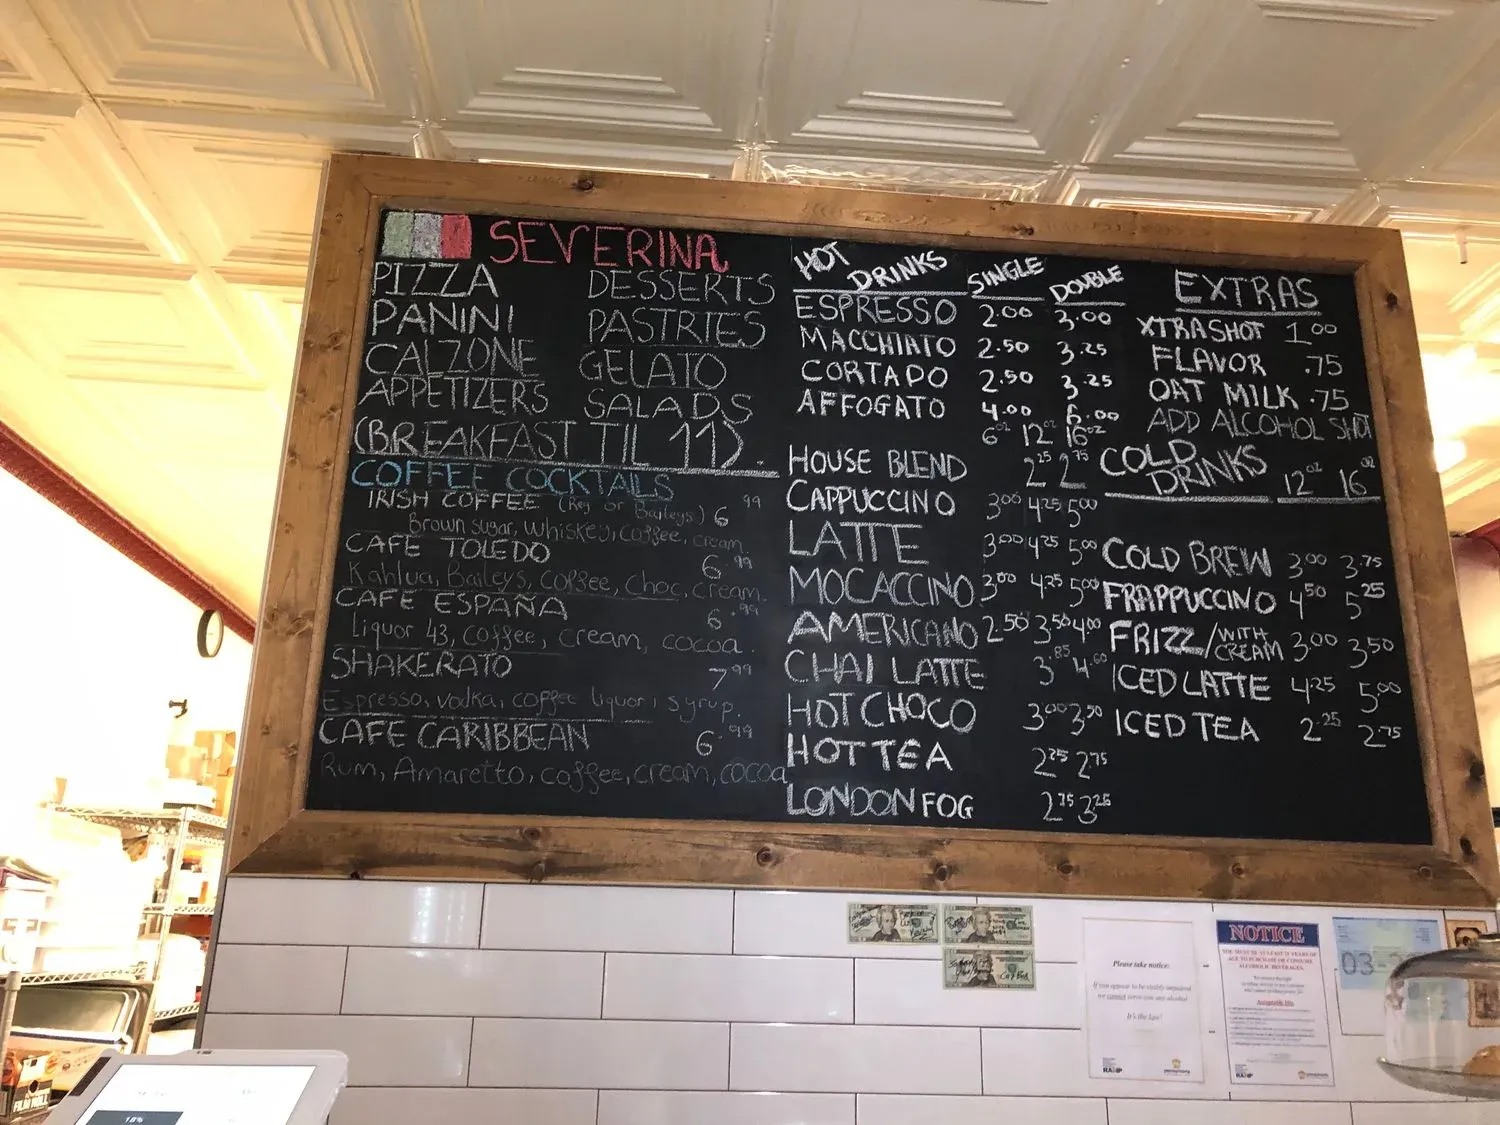 SEVERINA
PIZZA DESSERTS
PANINI PASTRIES
CALZONE GELATO
APPETIZERS SALADS
(BREAKFAST TIL 11).
COFFEE COCKTAILS
IRISH COFFEE (Reg or Baileys) 6.99
Brown sugar, whiskey, coffee, cream.
CAFE TOLEDO 6.99
Kahlua, Baileys, coffee, choc, cream.
CAFE ESPAÑA 6.99
Liquor 43, coffee, cream, cocoa.
SHAKERATO 7.99
Espresso, vodka, coffee liquor, syrup.
CAFE CARIBBEAN 6.99
Rum, Amaretto, coffee, cream, cocoa
HOT DRINKS SINGLE DOUBLE
ESPRESSO 2.00 3.00
MACCHIATO 2.50 3.25
CORTADO 2.50 3.25
AFFOGATO 4.00 6.00
6oz 12oz 16oz
HOUSE BLEND 2.25 2.75
CAPPUCCINO 3.00 4.25 5.00
LATTE 3.00 4.25 5.00
MOCACCINO 3.00 4.25 5.00
AMERICANO 2.50 3.50 4.00
CHAI LATTE 3.85 4.60
HOT CHOCO 3.00 3.50
HOT TEA 2.25 2.75
LONDON FOG 2.75 3.25
EXTRAS
XTRA SHOT 1.00
FLAVOR .75
OAT MILK .75
ADD ALCOHOL SHOT
COLD DRINKS 12oz 16oz
COLD BREW 3.00 3.75
FRAPPUCCINO 4.50 5.25
FRIZZ/WITH CREAM 3.00 3.50
ICED LATTE 4.25 5.00
ICED TEA 2.25 2.75
Please take notice:
If you appear to be visibly impaired
we cannot serve you any alcohol
It's the law!
RAMP
NOTICE
YOU MUST BE AT LEAST 21 YEARS OF
AGE TO PURCHASE OR CONSUME
ALCOHOLIC BEVERAGES.
Acceptable IDs
03-2
FILM ROLL
18%